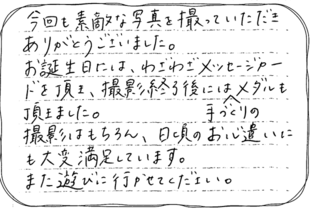 今回も素敵な写真を撮っていただき
ありがとうございました。
お誕生日には、わざわざメッセージカー
ドを頂き、撮影終了後には手づくりのメダルも
頂きました。
撮影はもちろん、日頃のお心遣いに
も大変満足しています。
また遊びに行かせてください。